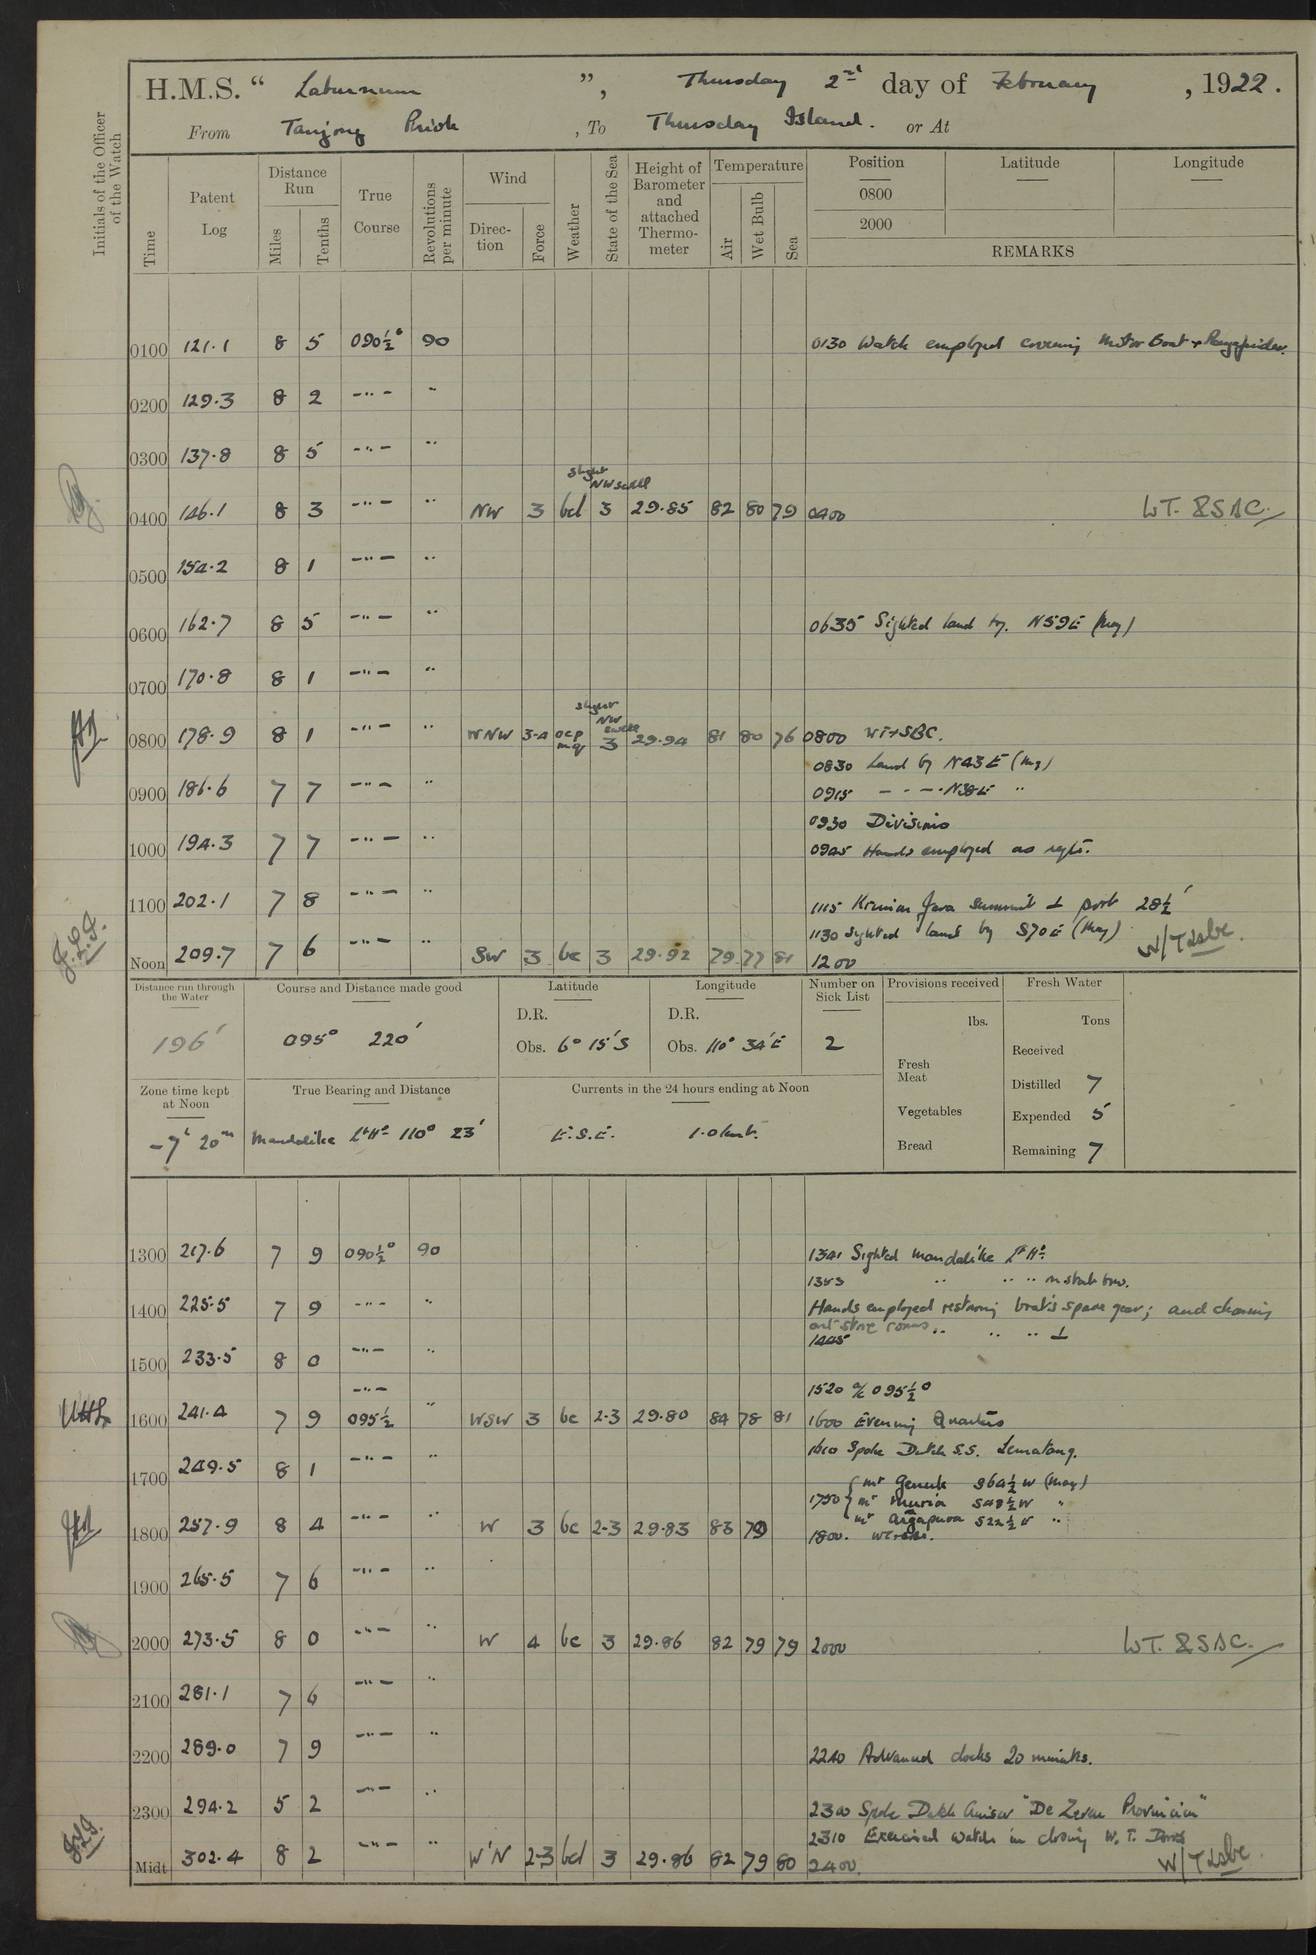 H.M.S. “ Laburnum ”, Thursday 2nd day of February, 1922.
From Tanjong Priok, To Thursday Island. or At
Initials of the Officer of the Watch
Time Patent Log Distance Run Miles Tenths True Course Revolutions per minute Wind Direction Force Weather State of the Sea Height of Barometer and attached Thermometer Temperature Air Wet Bulb Sea Position Latitude Longitude
0800
2000
REMARKS
0100 121.1 8 5 090½° 90 0130 Watch employed covering Motor Boat +
0200 129.3 8 2 -"- "
0300 137.8 8 5 -"- "
slight NW swell
0400 146.1 8 3 -"- " NW 3 bcl 3 29.85 82 80 79 0400 WT. & SBC.
0500 154.2 8 1 -"- "
0600 162.7 8 5 -"- " 0635 Sighted land by. N59E (Mag)
0700 170.8 8 1 -"- "
slight NW swell
0800 178.9 8 1 -"- " WNW 3-4 ocp mq 3 29.94 81 80 76 0800 WT+SBC.
0830 Land by N43E (Mg)
0900 186.6 7 7 -"- " 0915 - - - N38E "
0930 Divisions
1000 194.3 7 7 -"- " 0945 Hands employed as reqte.
1100 202.1 7 8 -"- " 1115 Krimon Java Summit ⊥ port 28½'
1130 Sighted land by S70E (Mag)
Noon 209.7 7 6 -"- " SW 3 bc 3 29.92 79 77 81 1200 W/T & sbc.
Distance run through the Water Course and Distance made good Latitude Longitude Number on Sick List Provisions received Fresh Water
D.R. D.R. lbs. Tons
196' 095° 220' Obs. 6° 15' S Obs. 110° 34' E 2 Received
Fresh Meat
Zone time kept at Noon True Bearing and Distance Currents in the 24 hours ending at Noon Distilled 7
Vegetables Expended 5
-7h 20m Mandalike Lt Ho 110° 23' E.S.E. 1.0 knt. Bread Remaining 7
1300 217.6 7 9 090½° 90 1341 Sighted Mandalike Lt Ho
1353 " " " on starb bow.
1400 225.5 7 9 -"- " Hands employed restowing boat's spare gear; and cleaning
out store rooms
1445 " " " ⊥
1500 233.5 8 0 -"- "
-"- 1520 a/c 095½°
1600 241.4 7 9 095½ " WSW 3 bc 2-3 29.80 84 78 81 1600 Evening Quarters
1610 Spoke Dutch S.S. Lematang.
1700 249.5 8 1 -"- "
1750 { Mt Genuk S64½W (Mag)
Mt Muria S48½W "
Mt Argapura S22½W "
1800 257.9 8 4 -"- " W 3 bc 2-3 29.83 83 79 1800.
1900 265.5 7 6 -"- "
2000 273.5 8 0 -"- " W 4 bc 3 29.86 82 79 79 2000 WT. & SBC.
2100 281.1 7 6 -"- "
2200 289.0 7 9 -"- " 2240 Advanced clocks 20 minutes.
2300 294.2 5 2 -"- " 2300 Spoke Dutch Cruiser "De Zeven Provincien"
2310 Exercised Watch in closing W.T. Doors
Midt 302.4 8 2 -"- " W'N 2-3 bcl 3 29.86 82 79 80 2400. W/T & sbc.